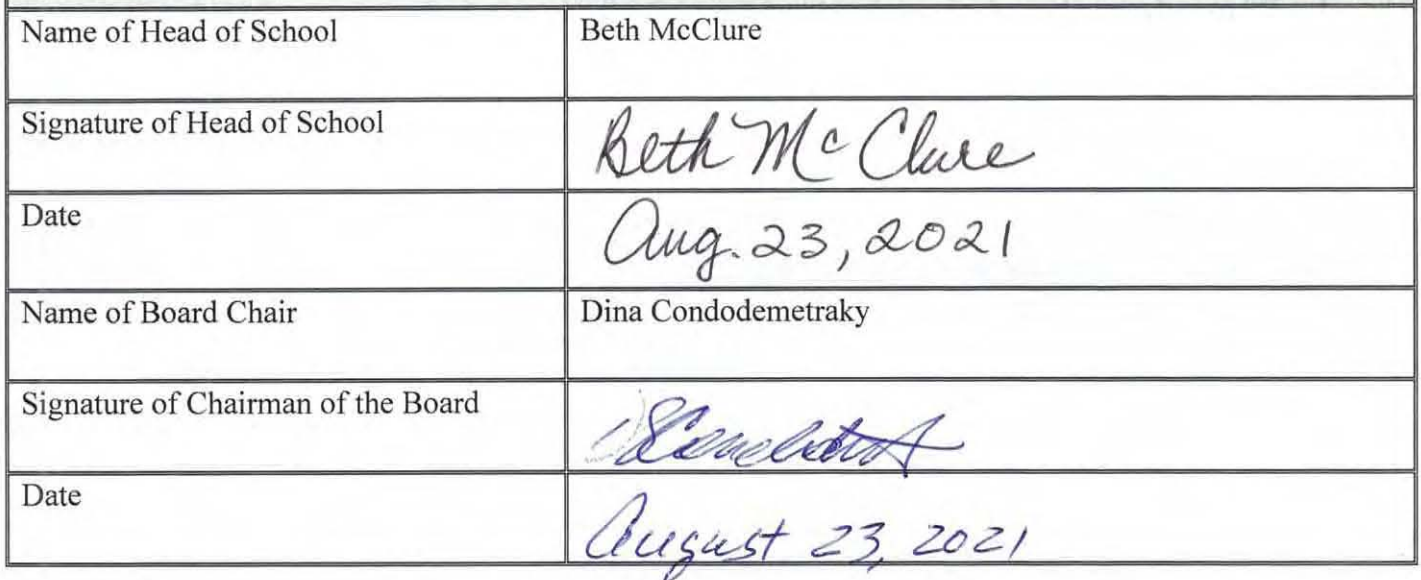 Name of Head of School Beth McClure
Signature of Head of School Beth McClure
Date Aug. 23, 2021
Name of Board Chair Dina Condodemetraky
Signature of Chairman of the Board
Date August 23, 2021